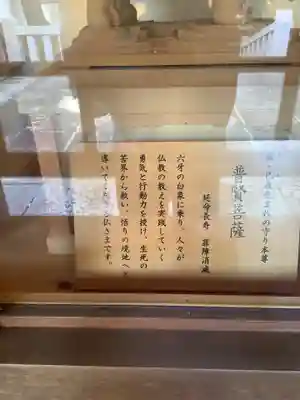 辰・巳歳生まれの守り本尊
普賢菩薩
延命長寿 罪障消滅
六牙の白象に乗り、人々が
仏教の教えを実践していく
勇気と行動力を授け、生死の
苦界から救い、悟りの境地へ
導いてくださる仏さまです。